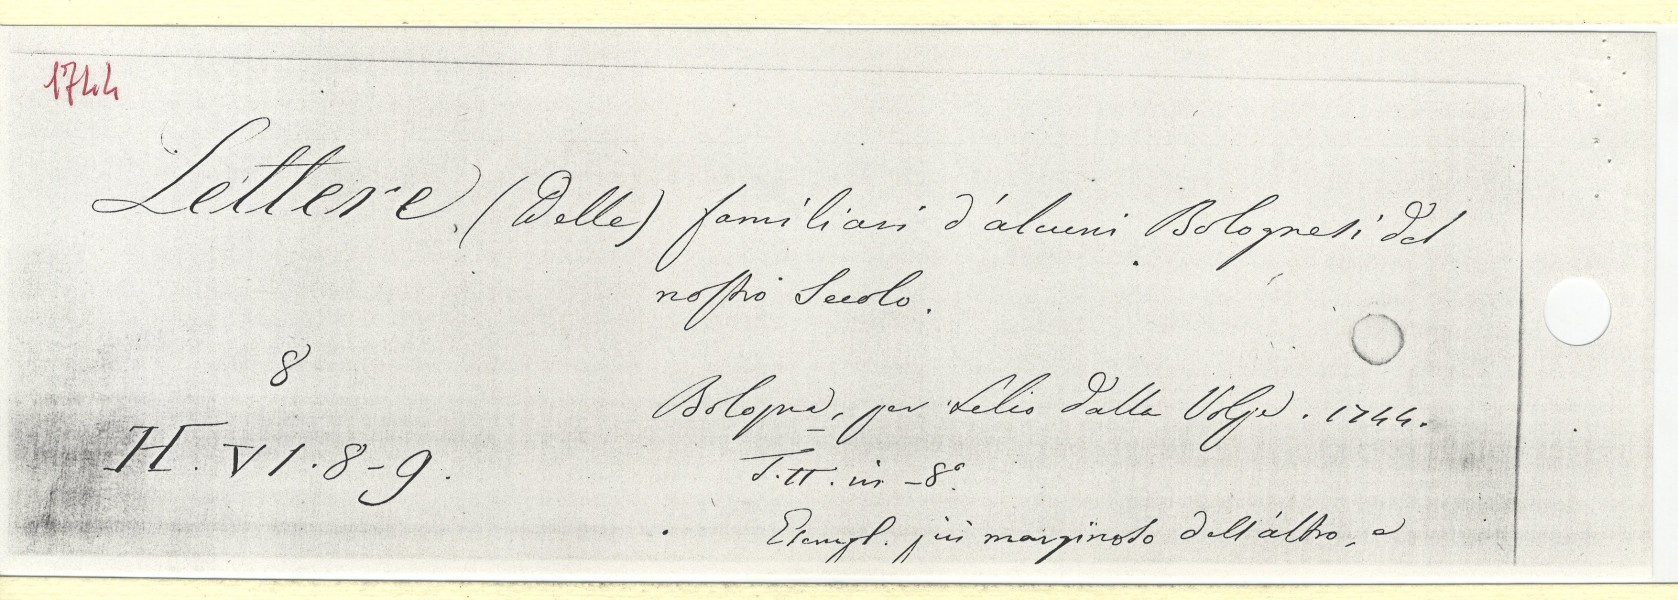 1744
Lettere (Delle) familiari d'alcuni Bolognesi del
nostro Secolo.
8
H. VI. 8-9.
Bologna, per Lelio dalla Volpe. 1744.
T. II. in -8°.
Esempl. più marginoso dell'altro, e